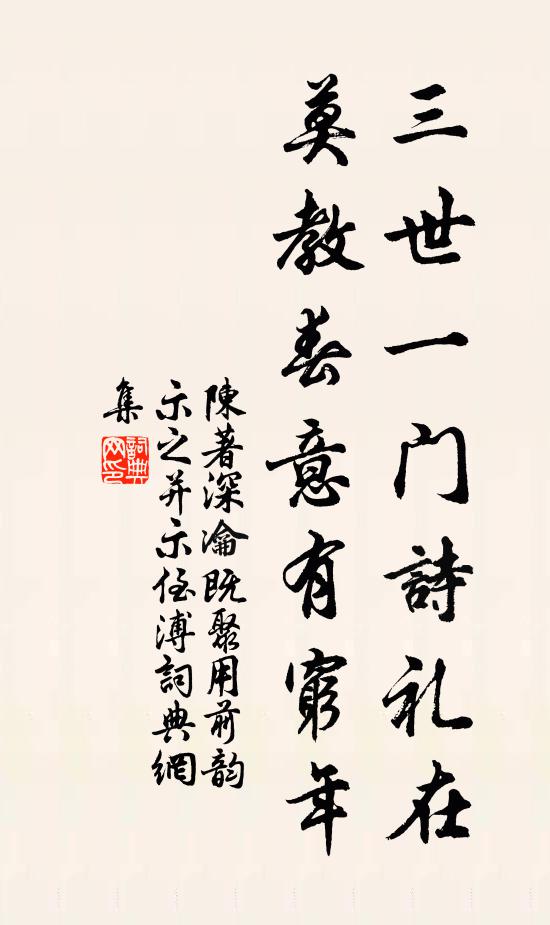 三世一门詩礼在
莫教春意有窮年
陳著深瀹既聚用前韵
示之并示侄溥詞典網
集
詞典
网印